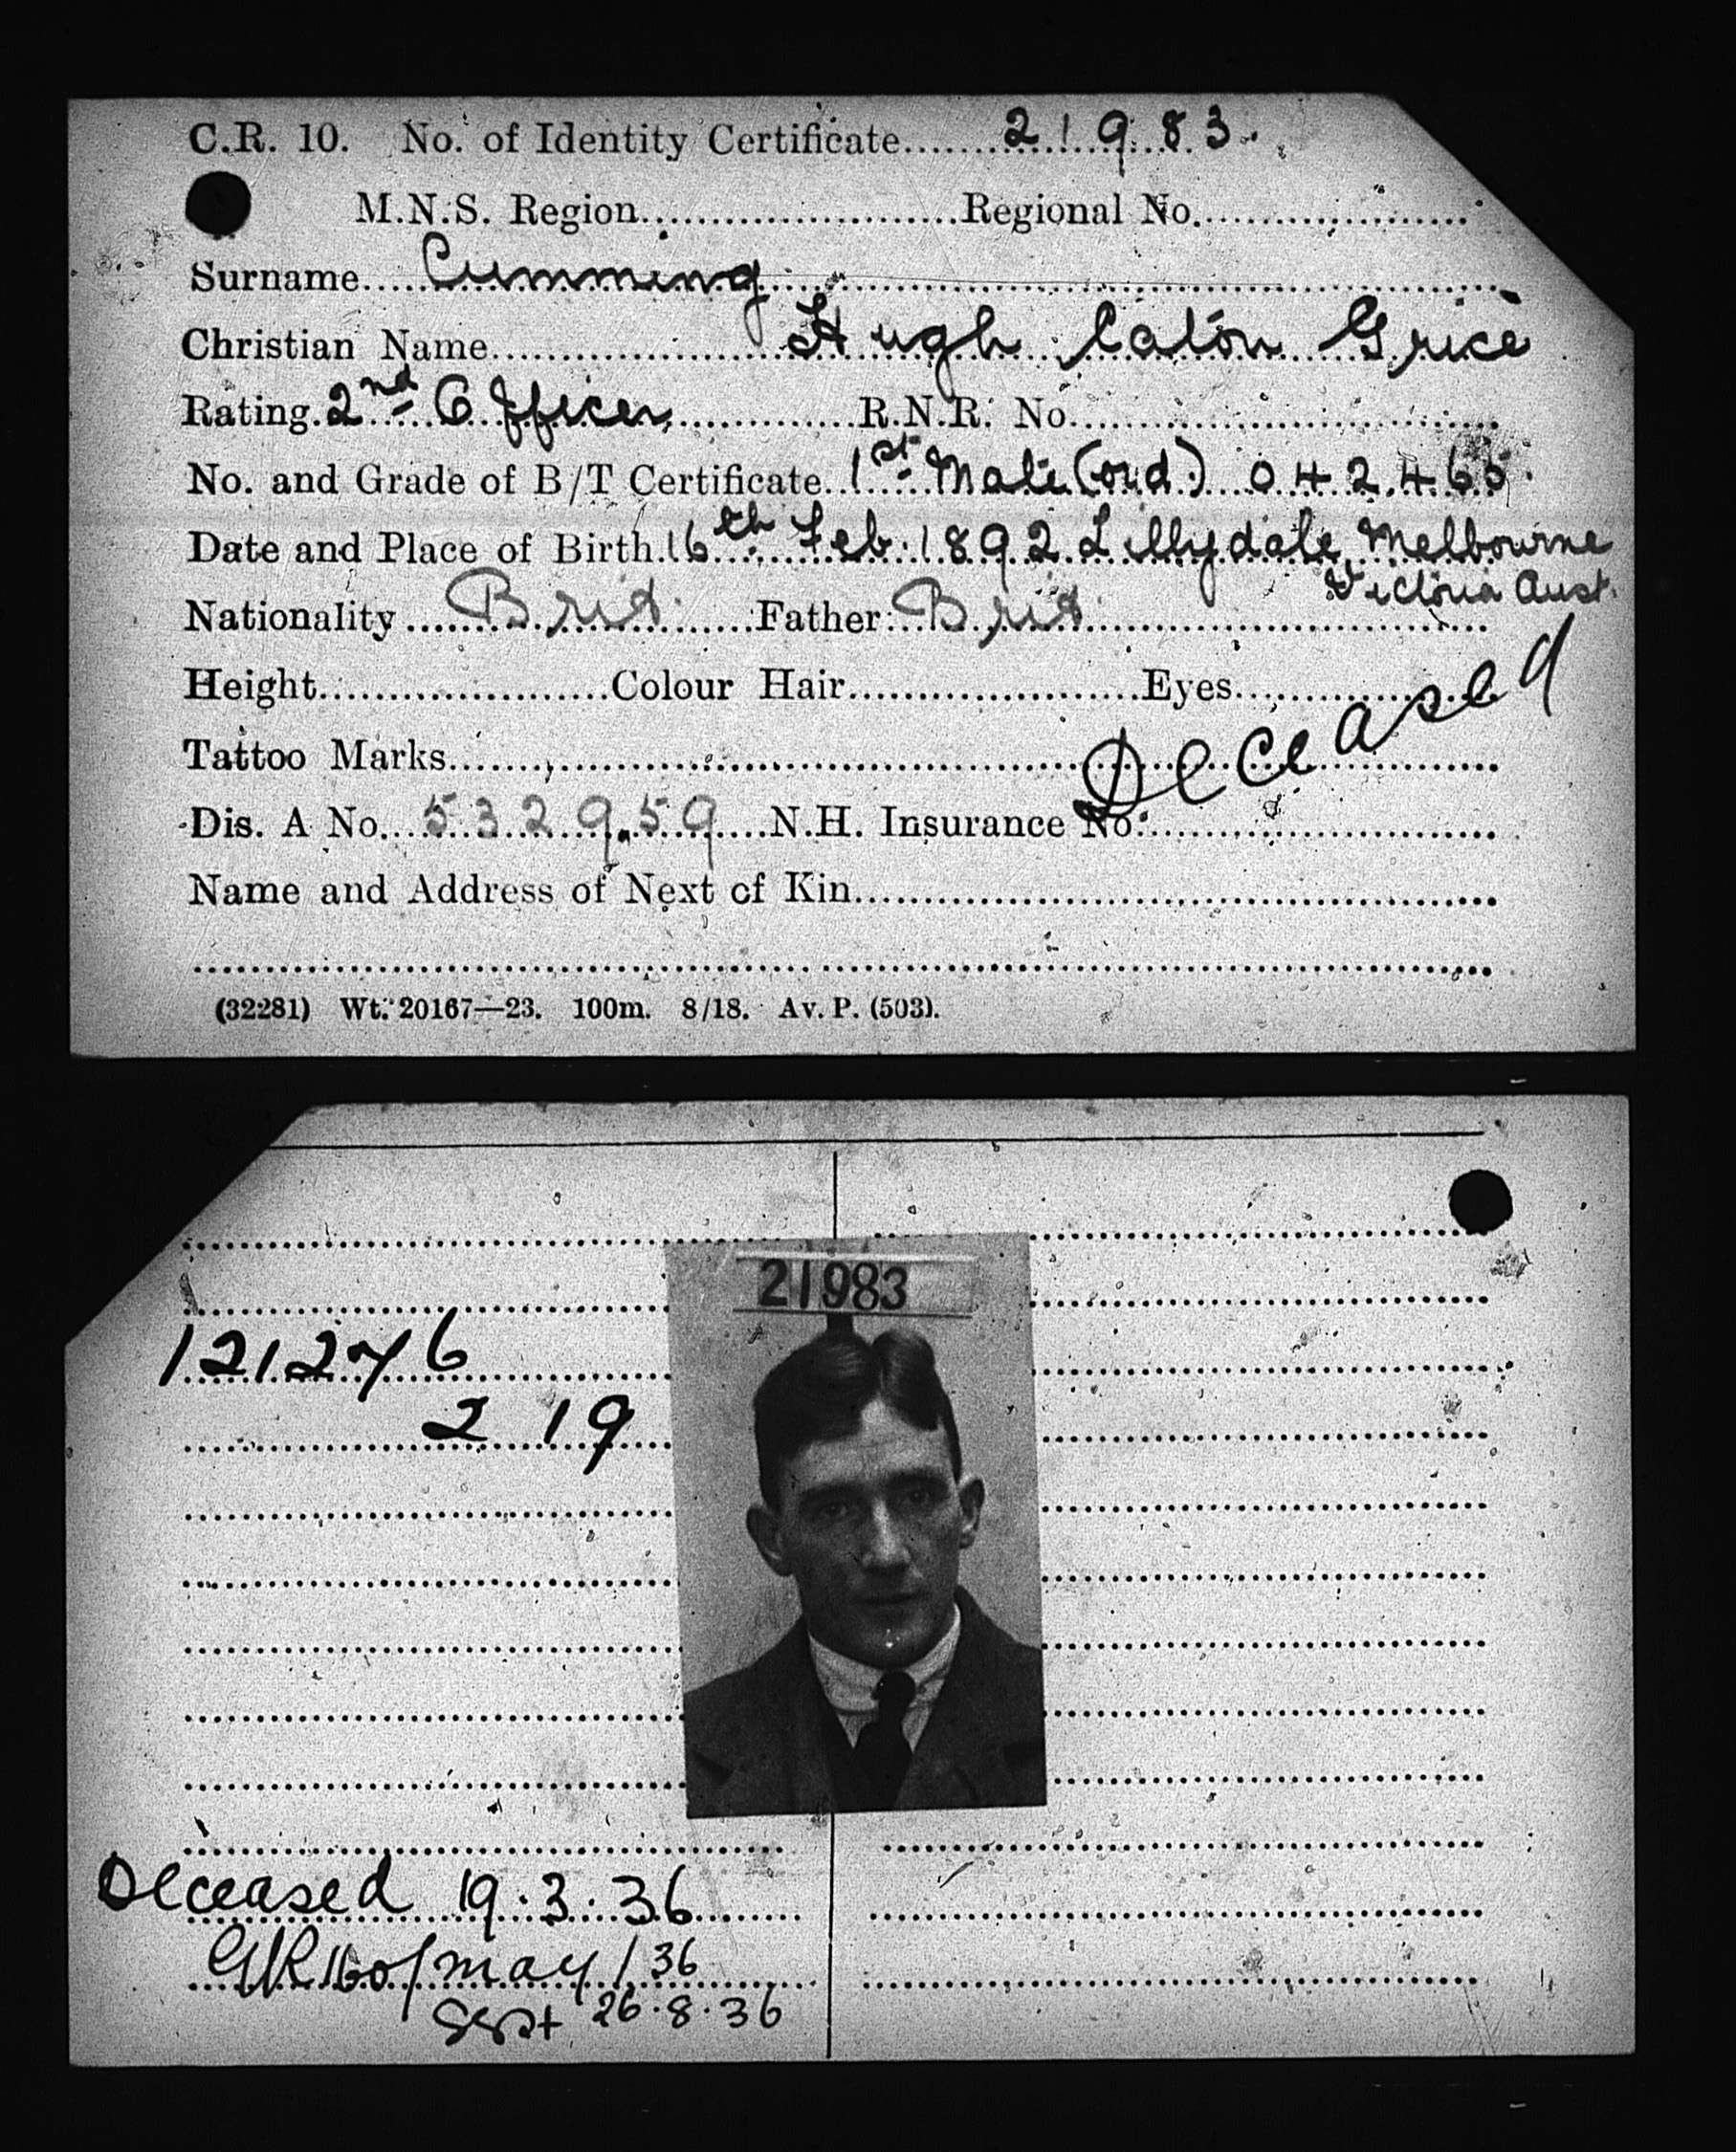 C.R. 10. No. of Identity Certificate 21983.
M.N.S. Region Regional No.
Surname Cumming
Christian Name Hugh Calon Grice
Rating 2nd Officer R.N.R. No.
No. and Grade of B/T Certificate 1st Mate (ord.) 042465
Date and Place of Birth 16th Feb. 1892 Lillydale Melbourne
Victoria Aust.
Nationality Brit. Father: Brit
Height Colour Hair Eyes
Deceased
Tattoo Marks
Dis. A No. 532959 N.H. Insurance No.
Name and Address of Next of Kin
(32281) Wt. 20167—23. 100m. 8/18. Av. P. (503).
21983
121276
2 19
Deceased 19.3.36
may / 36
Sept 26.8.36